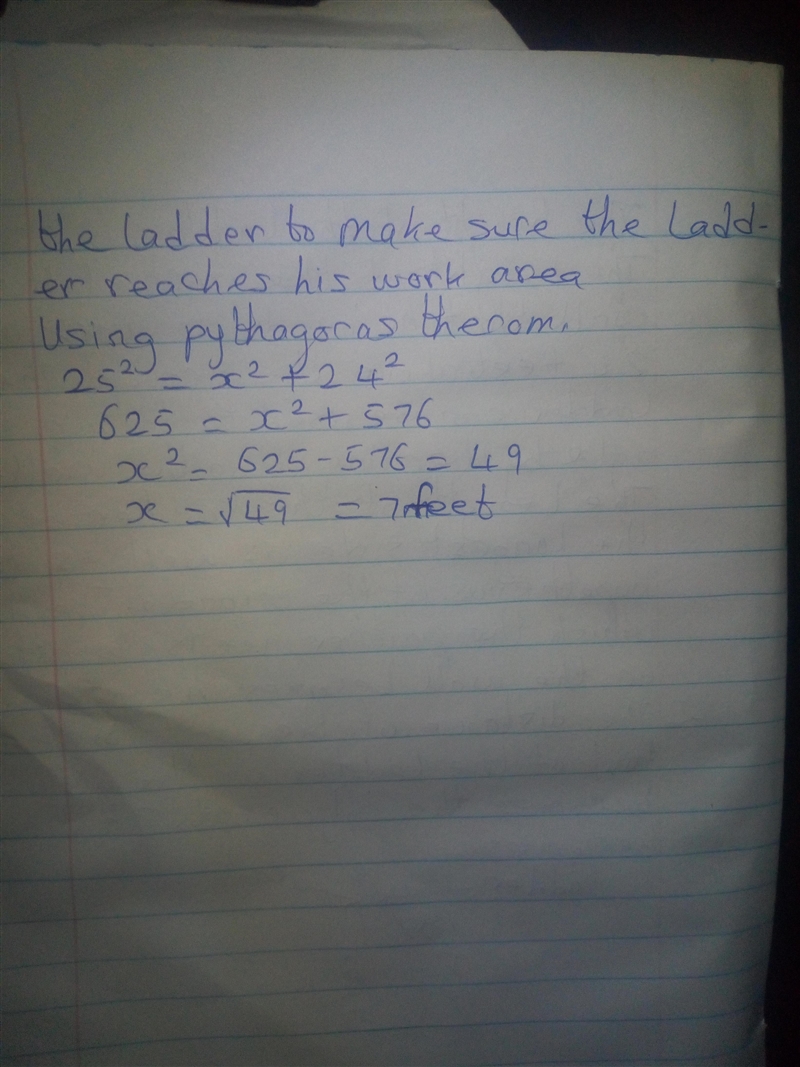 the ladder to make sure the Ladd-
er reaches his work area
Using pythagoras therom.
25² = x² + 24²
625 = x² + 576
x² = 625 - 576 = 49
x = √49 = 7 feet